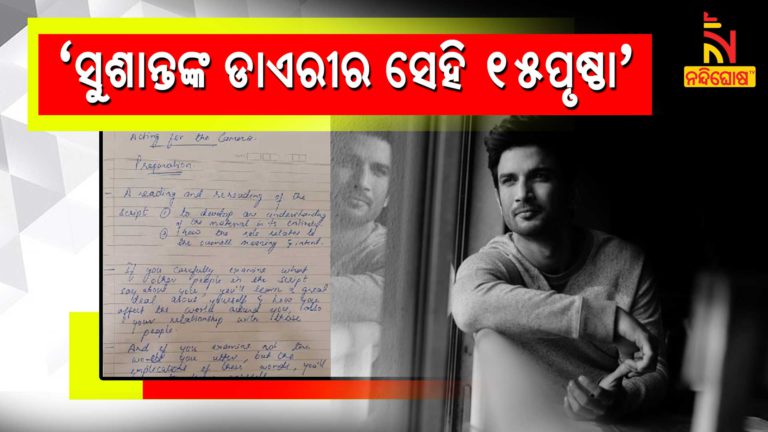 ‘ସୁଶାନ୍ତଙ୍କ ଡାଏରୀର ସେହି ୧୫ପୃଷ୍ଠା’
ନନ୍ଦିଘୋଷ TV
Acting for the Camera.
Preparation
- A reading and rereading of the
script ① to develop an understanding
of the material in its entirety
② how the role relates to
the overall meaning & intent.
- If you carefully examine what
other people in the script
say about you, you'll learn a great
deal about yourself & how you
affect the world around you, also
your relationship with those
people.
- And if you examine not the
words you utter, but the
implications of these words, you'll